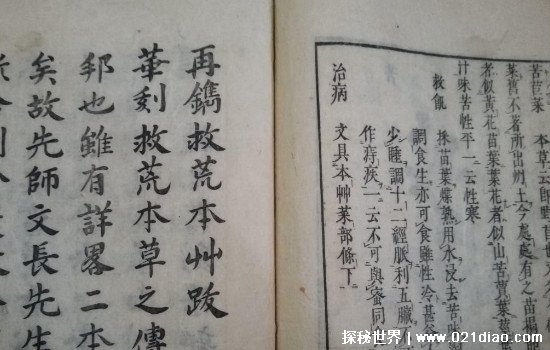 苦苣菜 本草云即野苣也又
菜舊不著所出州土今處處有之苗搨
者似黃花苗葉葉花者似山苦蕒葉
汁味苦性平一云性寒
救飢 採苗葉煠熟用水浸去苦味
調食生亦可食雖性冷甚
少睡調十二經脈利五臟
作痔疾一云不可與蜜同
治病 文具本艸菜部條下
再鐫救荒本艸跋
華刻救荒本草之傳
邦也雖有詳畧二本
矣故先師文長先生
探秘世界 | www.021diao.com